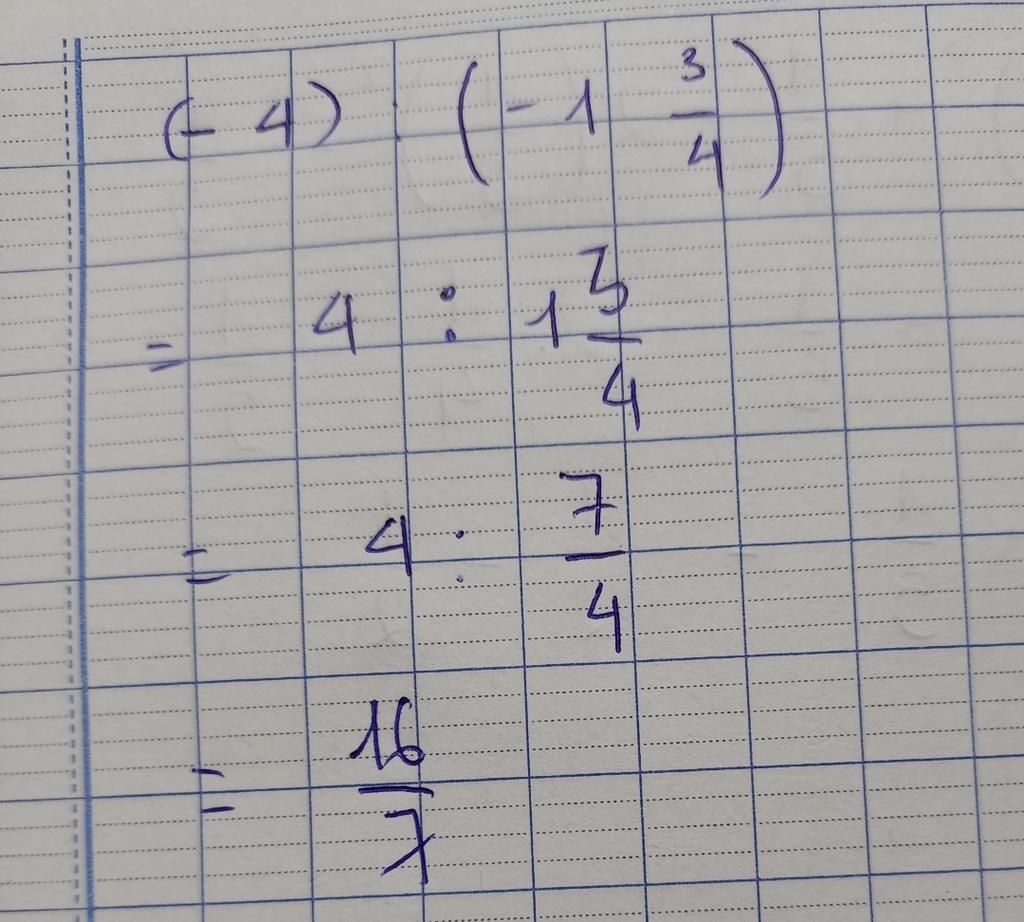 (- 4) : (- 1 3/4)
= 4 : 1 3/4
= 4 : 7/4
= 16/7